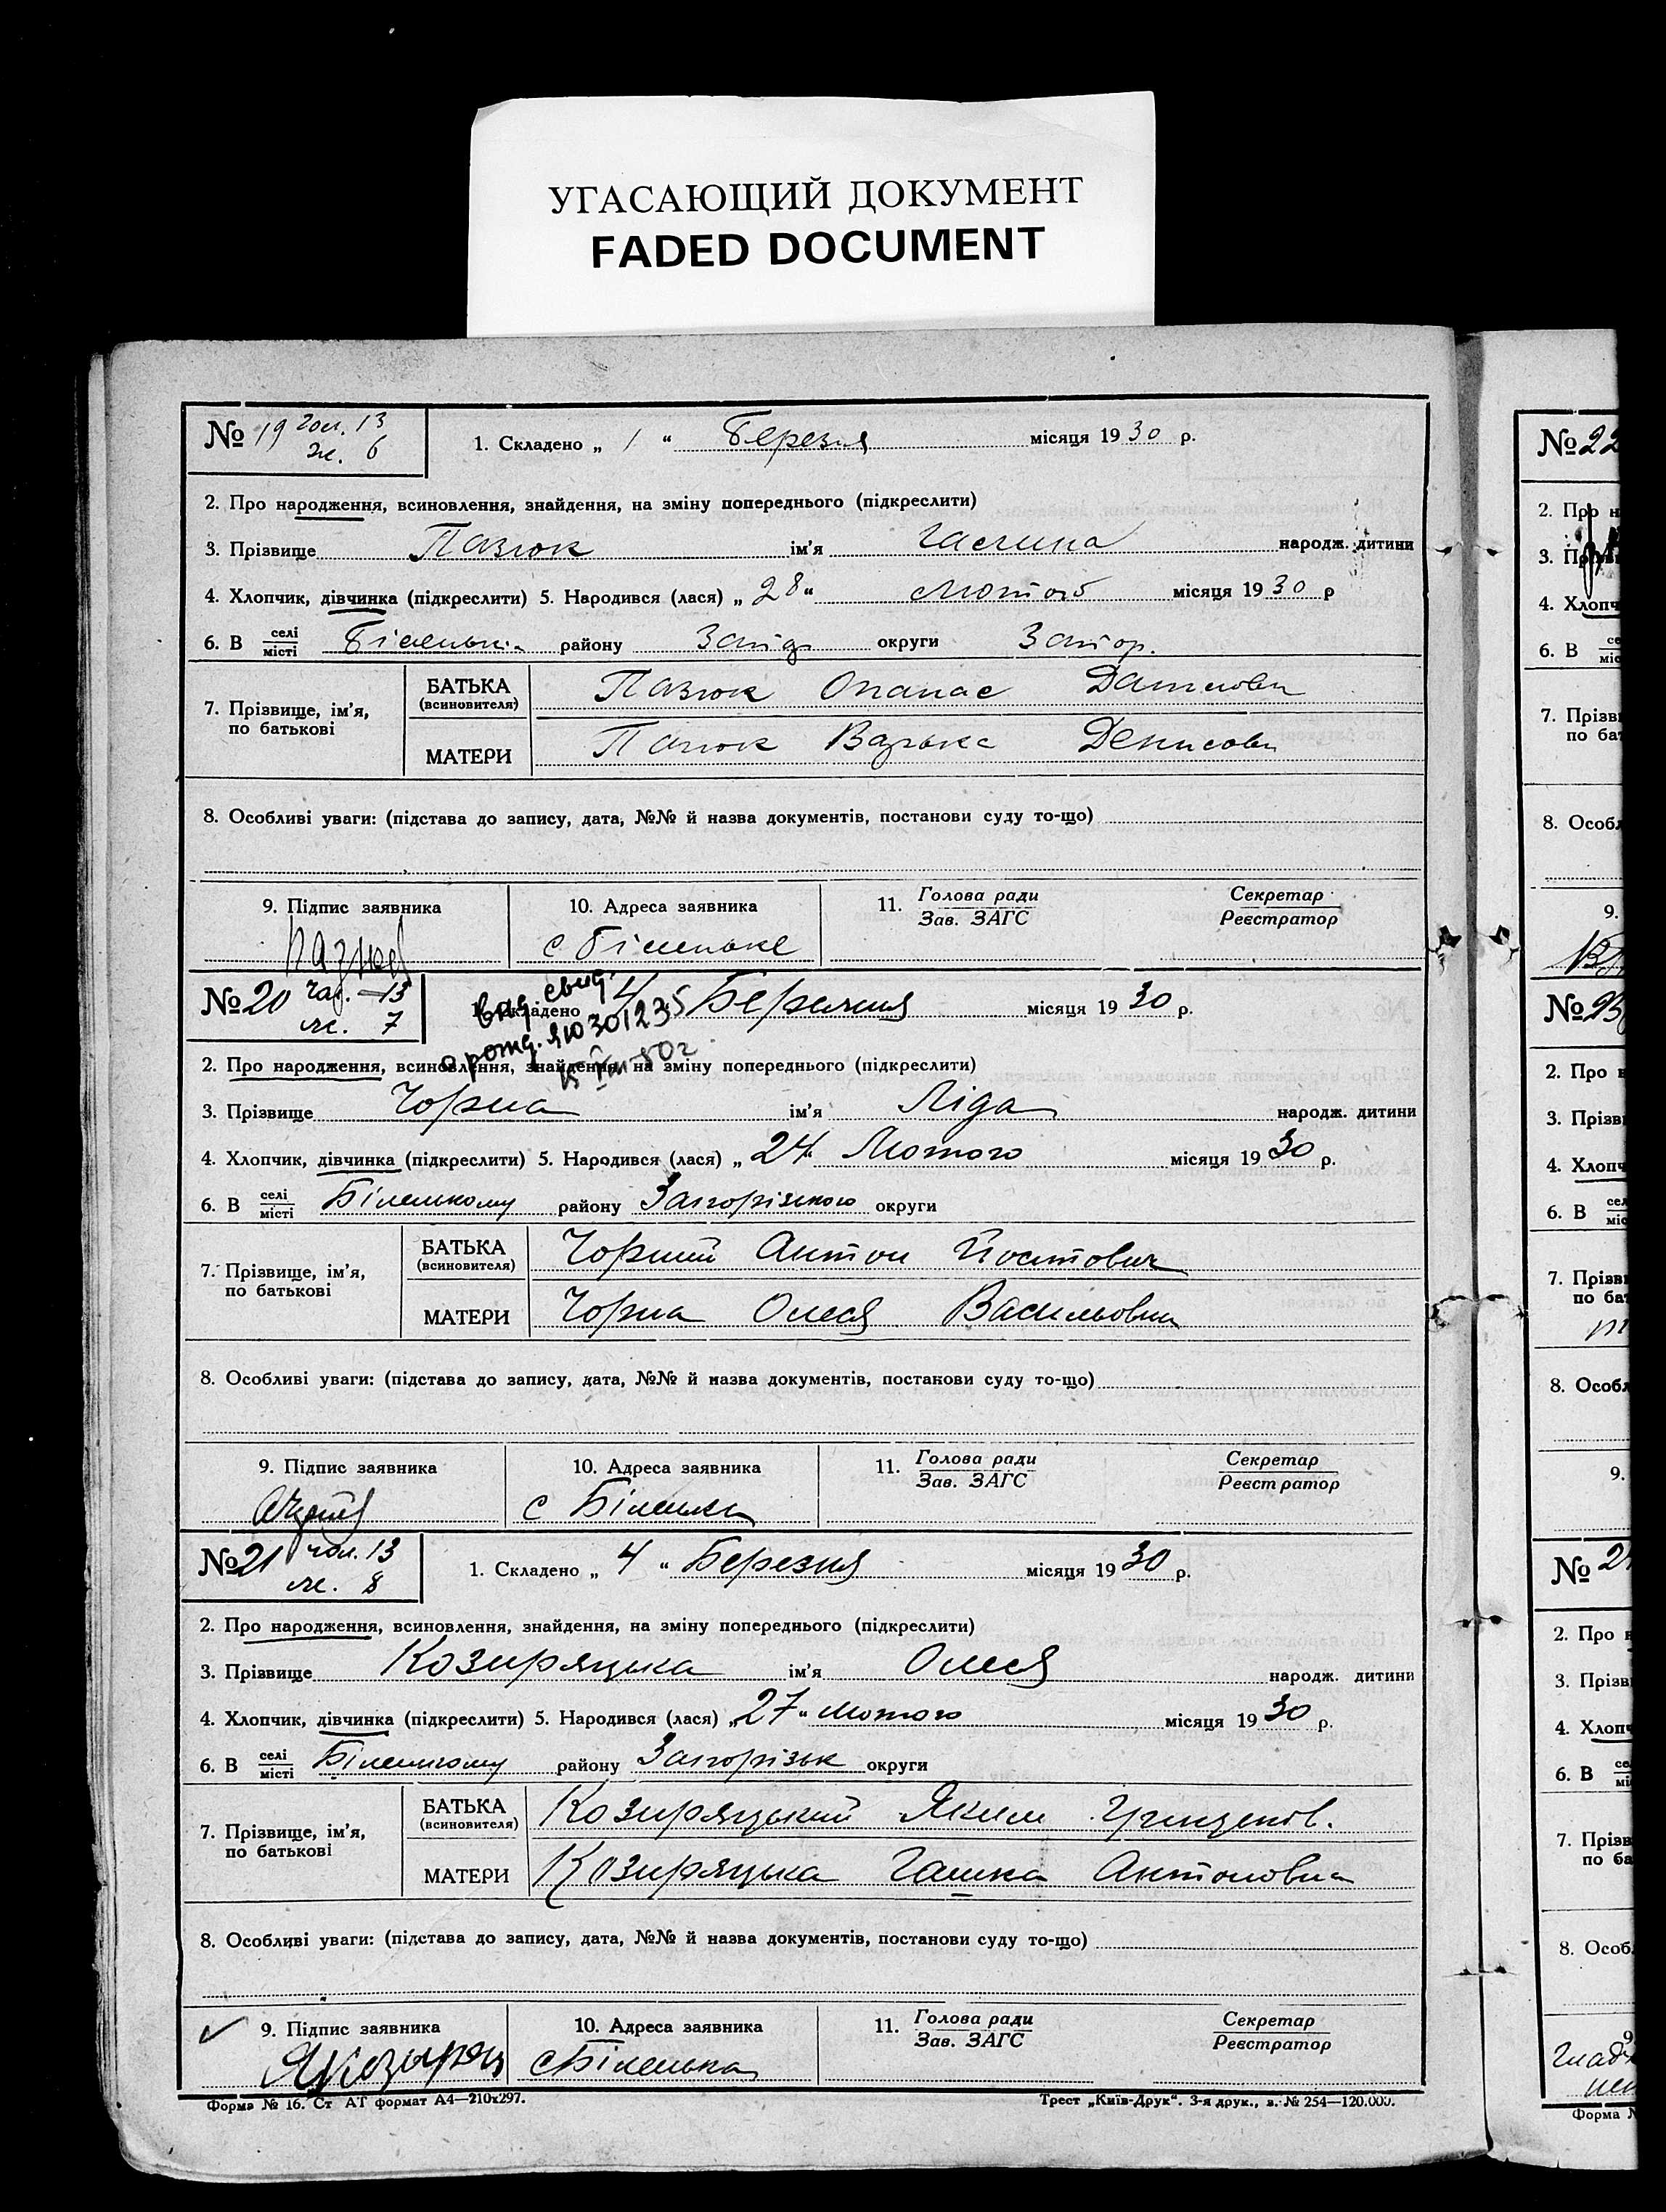 УГАСАЮЩИЙ ДОКУМЕНТ
FADED DOCUMENT
№ 19 чол. 13
ж. 6
1. Складено „ 1 “ Березня місяця 1930 р.
2. Про народження, всиновлення, знайдення, на зміну попереднього (підкреслити)
3. Прізвище Пазюк ім'я Галина народж. дитини
4. Хлопчик, дівчинка (підкреслити) 5. Народився (лася) „ 28 “ Лютого місяця 1930 р
6. В селі місті району Запор округи Запор.
7. Прізвище, ім'я, по батькові
БАТЬКА (всиновителя) Пазюк Опанас Данилови
МАТЕРИ Пазюк Варька Денисовн
8. Особливі уваги: (підстава до запису, дата, №№ й назва документів, постанови суду то-що)
9. Підпис заявника 10. Адреса заявника 11. Голова ради Зав. ЗАГС Секретар Реєстратор
с Біленьке
№ 20 чол. – 13
ж. 7
1. Складено 4 Березня місяця 1930 р.
выд. свид.
о рожд. ЯЮ 301235
2. Про народження, всиновлення, знайдення, на зміну попереднього (підкреслити)
3. Прізвище Чорна ім'я Ліда народж. дитини
4. Хлопчик, дівчинка (підкреслити) 5. Народився (лася) „ 24 “ Лютого місяця 1930 р.
6. В селі місті Біленькому району Запорізького округи
7. Прізвище, ім'я, по батькові
БАТЬКА (всиновителя) Чорний Антон
МАТЕРИ Чорна Олеся Васильовна
8. Особливі уваги: (підстава до запису, дата, №№ й назва документів, постанови суду то-що)
9. Підпис заявника 10. Адреса заявника 11. Голова ради Зав. ЗАГС Секретар Реєстратор
с Біленька
№ 21 чол. 13
ж. 8
1. Складено „ 4 “ Березня місяця 1930 р.
2. Про народження, всиновлення, знайдення, на зміну попереднього (підкреслити)
3. Прізвище Козиряцька ім'я Олеся народж. дитини
4. Хлопчик, дівчинка (підкреслити) 5. Народився (лася) „ 27 “ Лютого місяця 1930 р.
6. В селі місті Біленькому району Запорізьк округи
7. Прізвище, ім'я, по батькові
БАТЬКА (всиновителя) Козиряцький Яким
МАТЕРИ Козиряцька Гашка Антоновна
8. Особливі уваги: (підстава до запису, дата, №№ й назва документів, постанови суду то-що)
9. Підпис заявника 10. Адреса заявника 11. Голова ради Зав. ЗАГС Секретар Реєстратор
с Біленька
Форма № 16. Ст АТ формат А4—210х297. Трест „Київ-Друк“. 3-я друк., з. № 254—120.000.
№ 22
2. Про н
4. Хлопч
6. В
7. Прізви
по бат
8. Особл
9.
№ 23
2. Про
3. Прізв
4. Хлопч
6. В
7. Прізви
по бат
8. Особл
9.
№
2. Про
3. Прізв
4. Хлопч
6. В
7. Прізв
по ба
8. Особ
9
Форма №